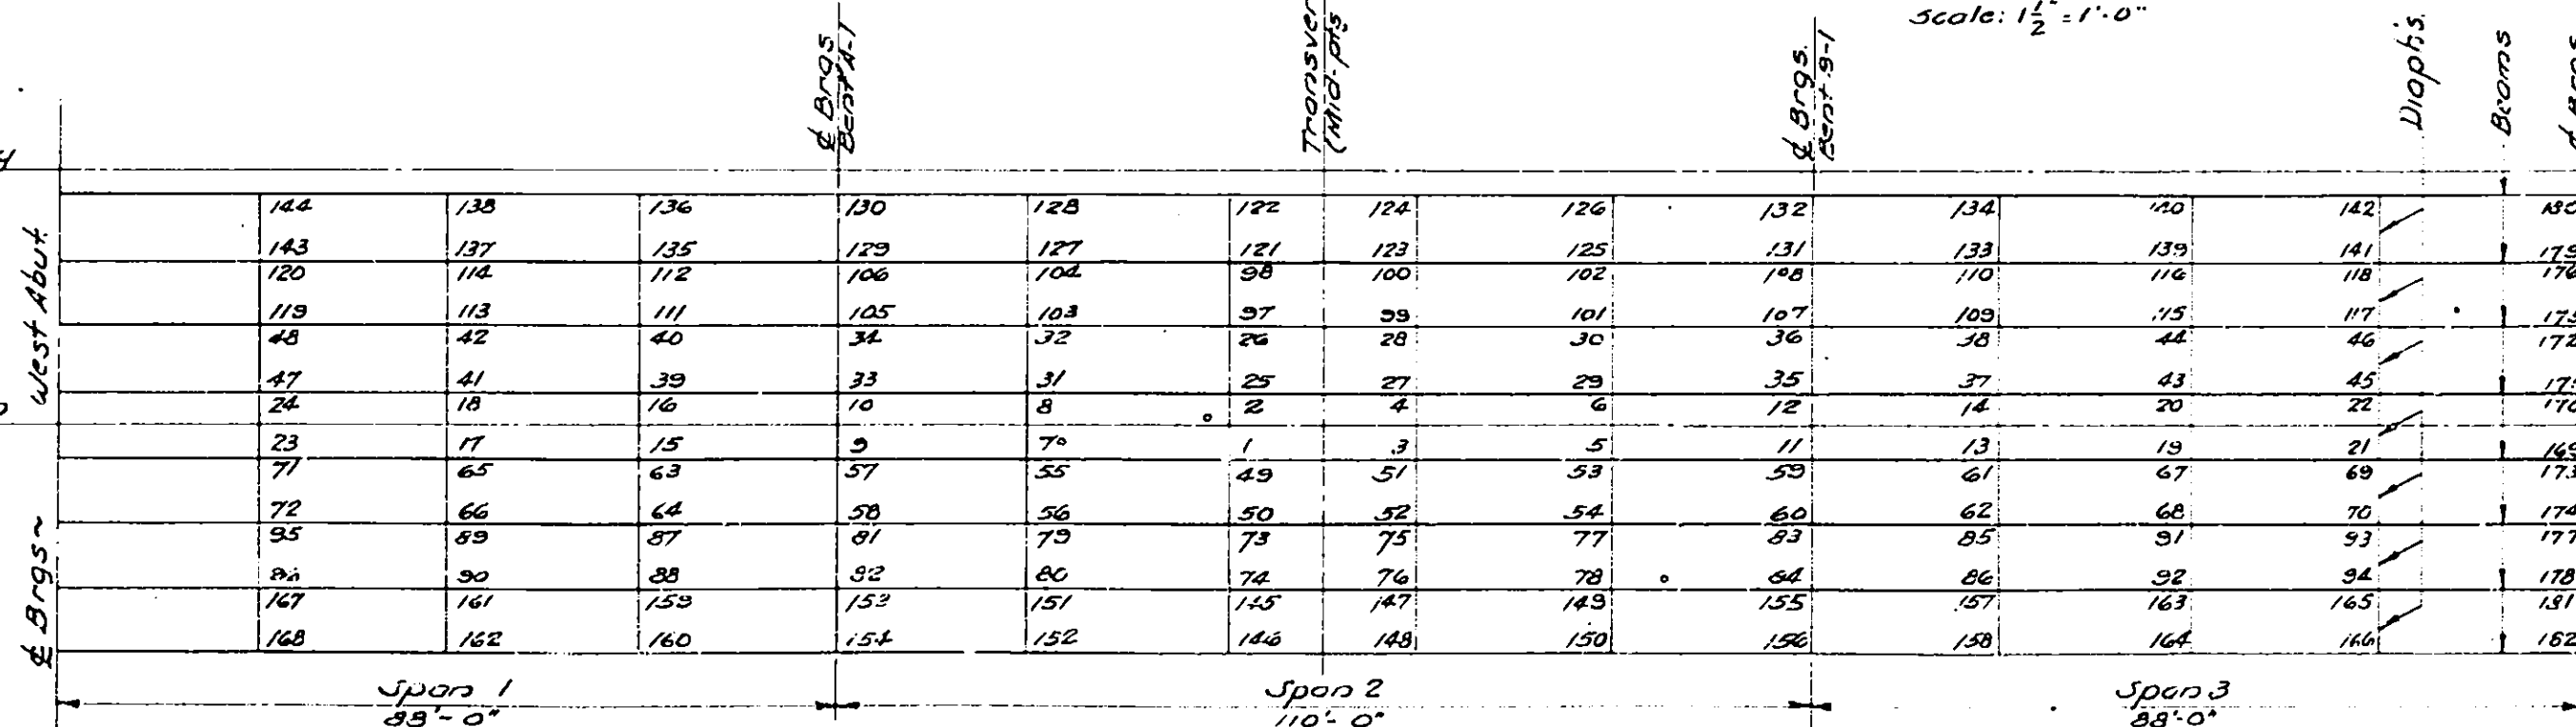 scale: 1½" = 1'-0"
℄ Brgs.
Bent A-1
(Mid-pts
℄ Brgs.
Bent B-1
Diaph's.
Beams
West Abut.
℄ Brgs ~
144 138 136 130 128 122 124 126 132 134 140 142
143 137 135 129 127 121 123 125 131 133 139 141
120 114 112 106 104 98 100 102 108 110 116 118
119 113 111 105 103 97 99 101 107 109 115 117
48 42 40 34 32 26 28 30 36 38 44 46 172
47 41 39 33 31 25 27 29 35 37 43 45
24 18 16 10 8 2 4 6 12 14 20 22
23 17 15 9 7 1 3 5 11 13 19 21
71 65 63 57 55 49 51 53 59 61 67 69
72 66 64 58 56 50 52 54 60 62 68 70
95 89 87 81 79 73 75 77 83 85 91 93
90 88 82 80 74 76 78 84 86 92 94 178
167 161 159 153 151 145 147 149 155 157 163 165
168 162 160 154 152 146 148 150 156 158 164 166 182
Span 1
88'-0"
Span 2
110'-0"
Span 3
88'-0"